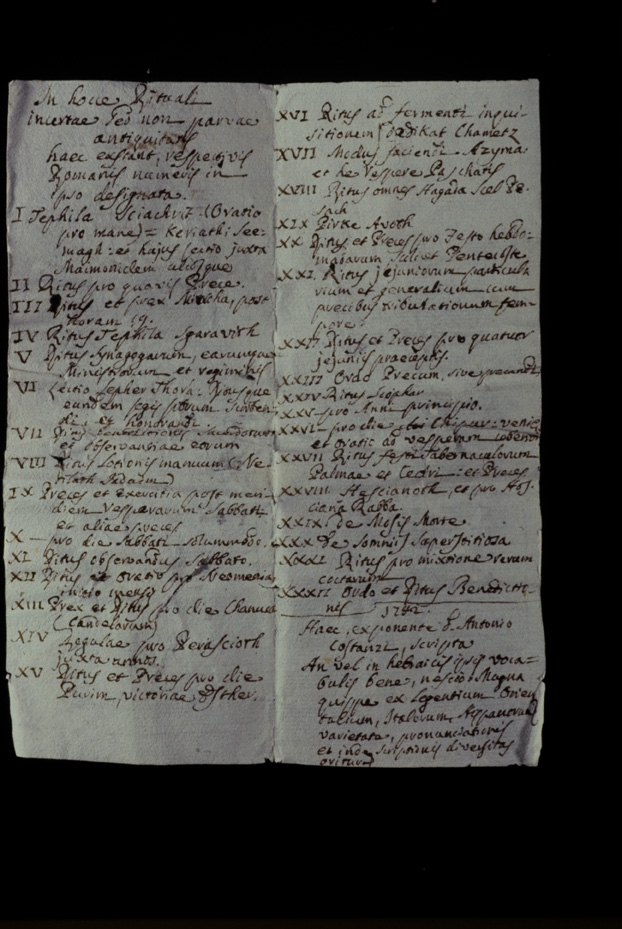 In hocce Rituali
incertae sed non parvae
antiquitatis
haec exstant, respectivis
Romanis numeris in
ipso designata.
I Tephila Sciachrit (Oratio
pro mane) = Keriathi See-
magh: et hujus lectio juxta
Maimonidem
II Ritus pro quovis Prece
III Ritus et prex Mincha, post
horam 9.
IV Ritus Tephila
V Ritus Synagogarum, earumque
Ministrorum et regiminis
VI Lectio Sepher Thora:
eundem legis librum
et honorandi.
VII
et observantiae eorum
VIII Ritus Lotionis manuum (Ne-
tilath Jadaim)
IX Preces et Exercitia post meri-
diem Vesperarum Sabbati
et aliae preces
X — pro die Sabbati solummodo.
XI Ritus observandus Sabbato.
XII Ritus et Oratio pro Neomenia
initio mensis
XIII Prex et Ritus pro die Chanuca
(Candelarum)
XIV Regulae pro Perascioth
juxta annos.
XV Ritus et Preces pro die
Purim, victoriae Esther.
XVI Ritus ad fermenti inqui-
sitionem Bedikat Chametz
XVII Modus faciendi Azyma:
et de Vespere Paschatis
XVIII Ritus omnis Hagada scel Pe-
sach
XIX Pirke Avoth
XX Ritus et Preces pro Festo hebdo-
madarum sive Pentecoste
XXI Ritus jejuniorum particula-
rium et generalium cum
precibus tribulationum tem-
pore
XXII Ritus et Preces pro quatuor
jejuniis praeceptis.
XXIII Ordo Precum, sive precandi
XXIV Ritus Sciophar
XXV pro Anni principio.
XXVI pro die Chipur: veniae
et Oratio ad vesperam
XXVII Ritus festi Tabernaculorum
Palmae et Cedri: et Preces
XXVIII Hoscianoth, et pro Hos-
ciana Rabba
XXIX de Mosis Morte
XXX De Somniis Superstitiosa
XXXI Ritus pro mixtione rerum
coctarum
XXXII Ordo et Ritus Benedictio-
nis
Haec, exponente D. Antonio
Costanzi, scripta
An vel in hebraicis ipsis voca-
bulis bene, nescio. Magna
quippe ex legentium Orien-
talium, Italorum, Hispanorum
varietate, pronunciationis
et inde scriptionis diversitas
oritur